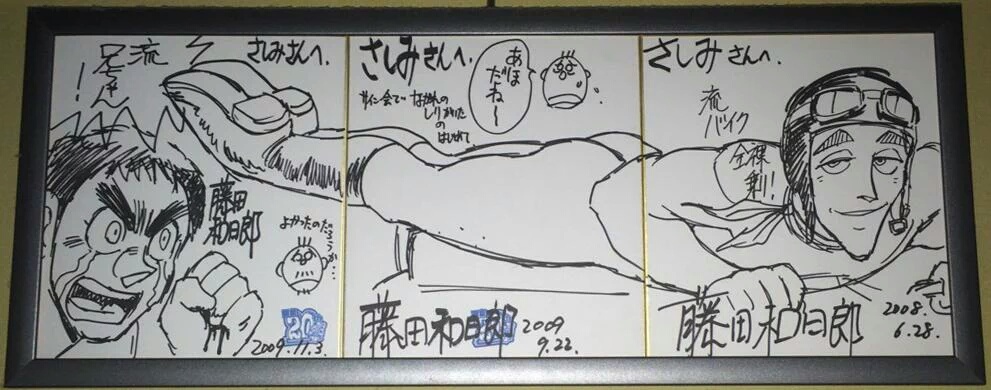 さしみさんへ.
流
バイク
全裸
乗り
藤田和日郎
2008.
6.28.
さしみさんへ.
あほ
だね〜
サイン会で
ながれの
しりかいた
の
はじめて
藤田和日郎
2009
9.22.
さしみさんへ.
流
兄ちゃん
ー!
藤田
和日郎
よかったのだろうか…
20
2009.11.3.